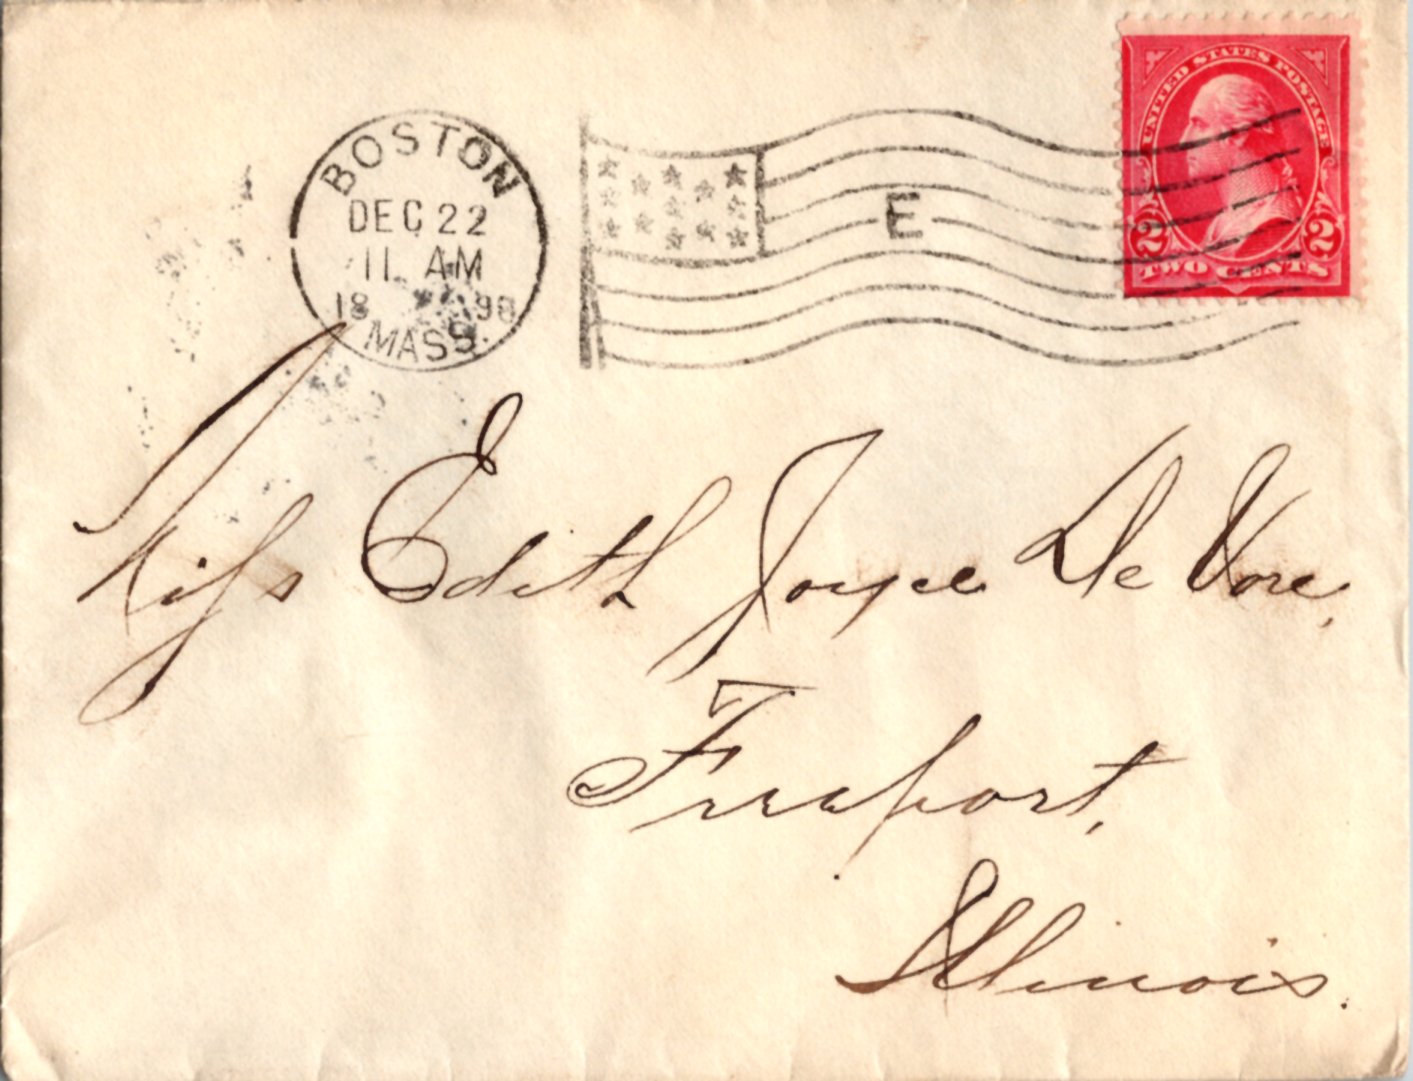 UNITED STATES POSTAGE
2 2
TWO CENTS
BOSTON
DEC 22
11 AM
18 98
MASS.
E
Miss Edith Joyce De Vore,
Freeport,
Illinois.